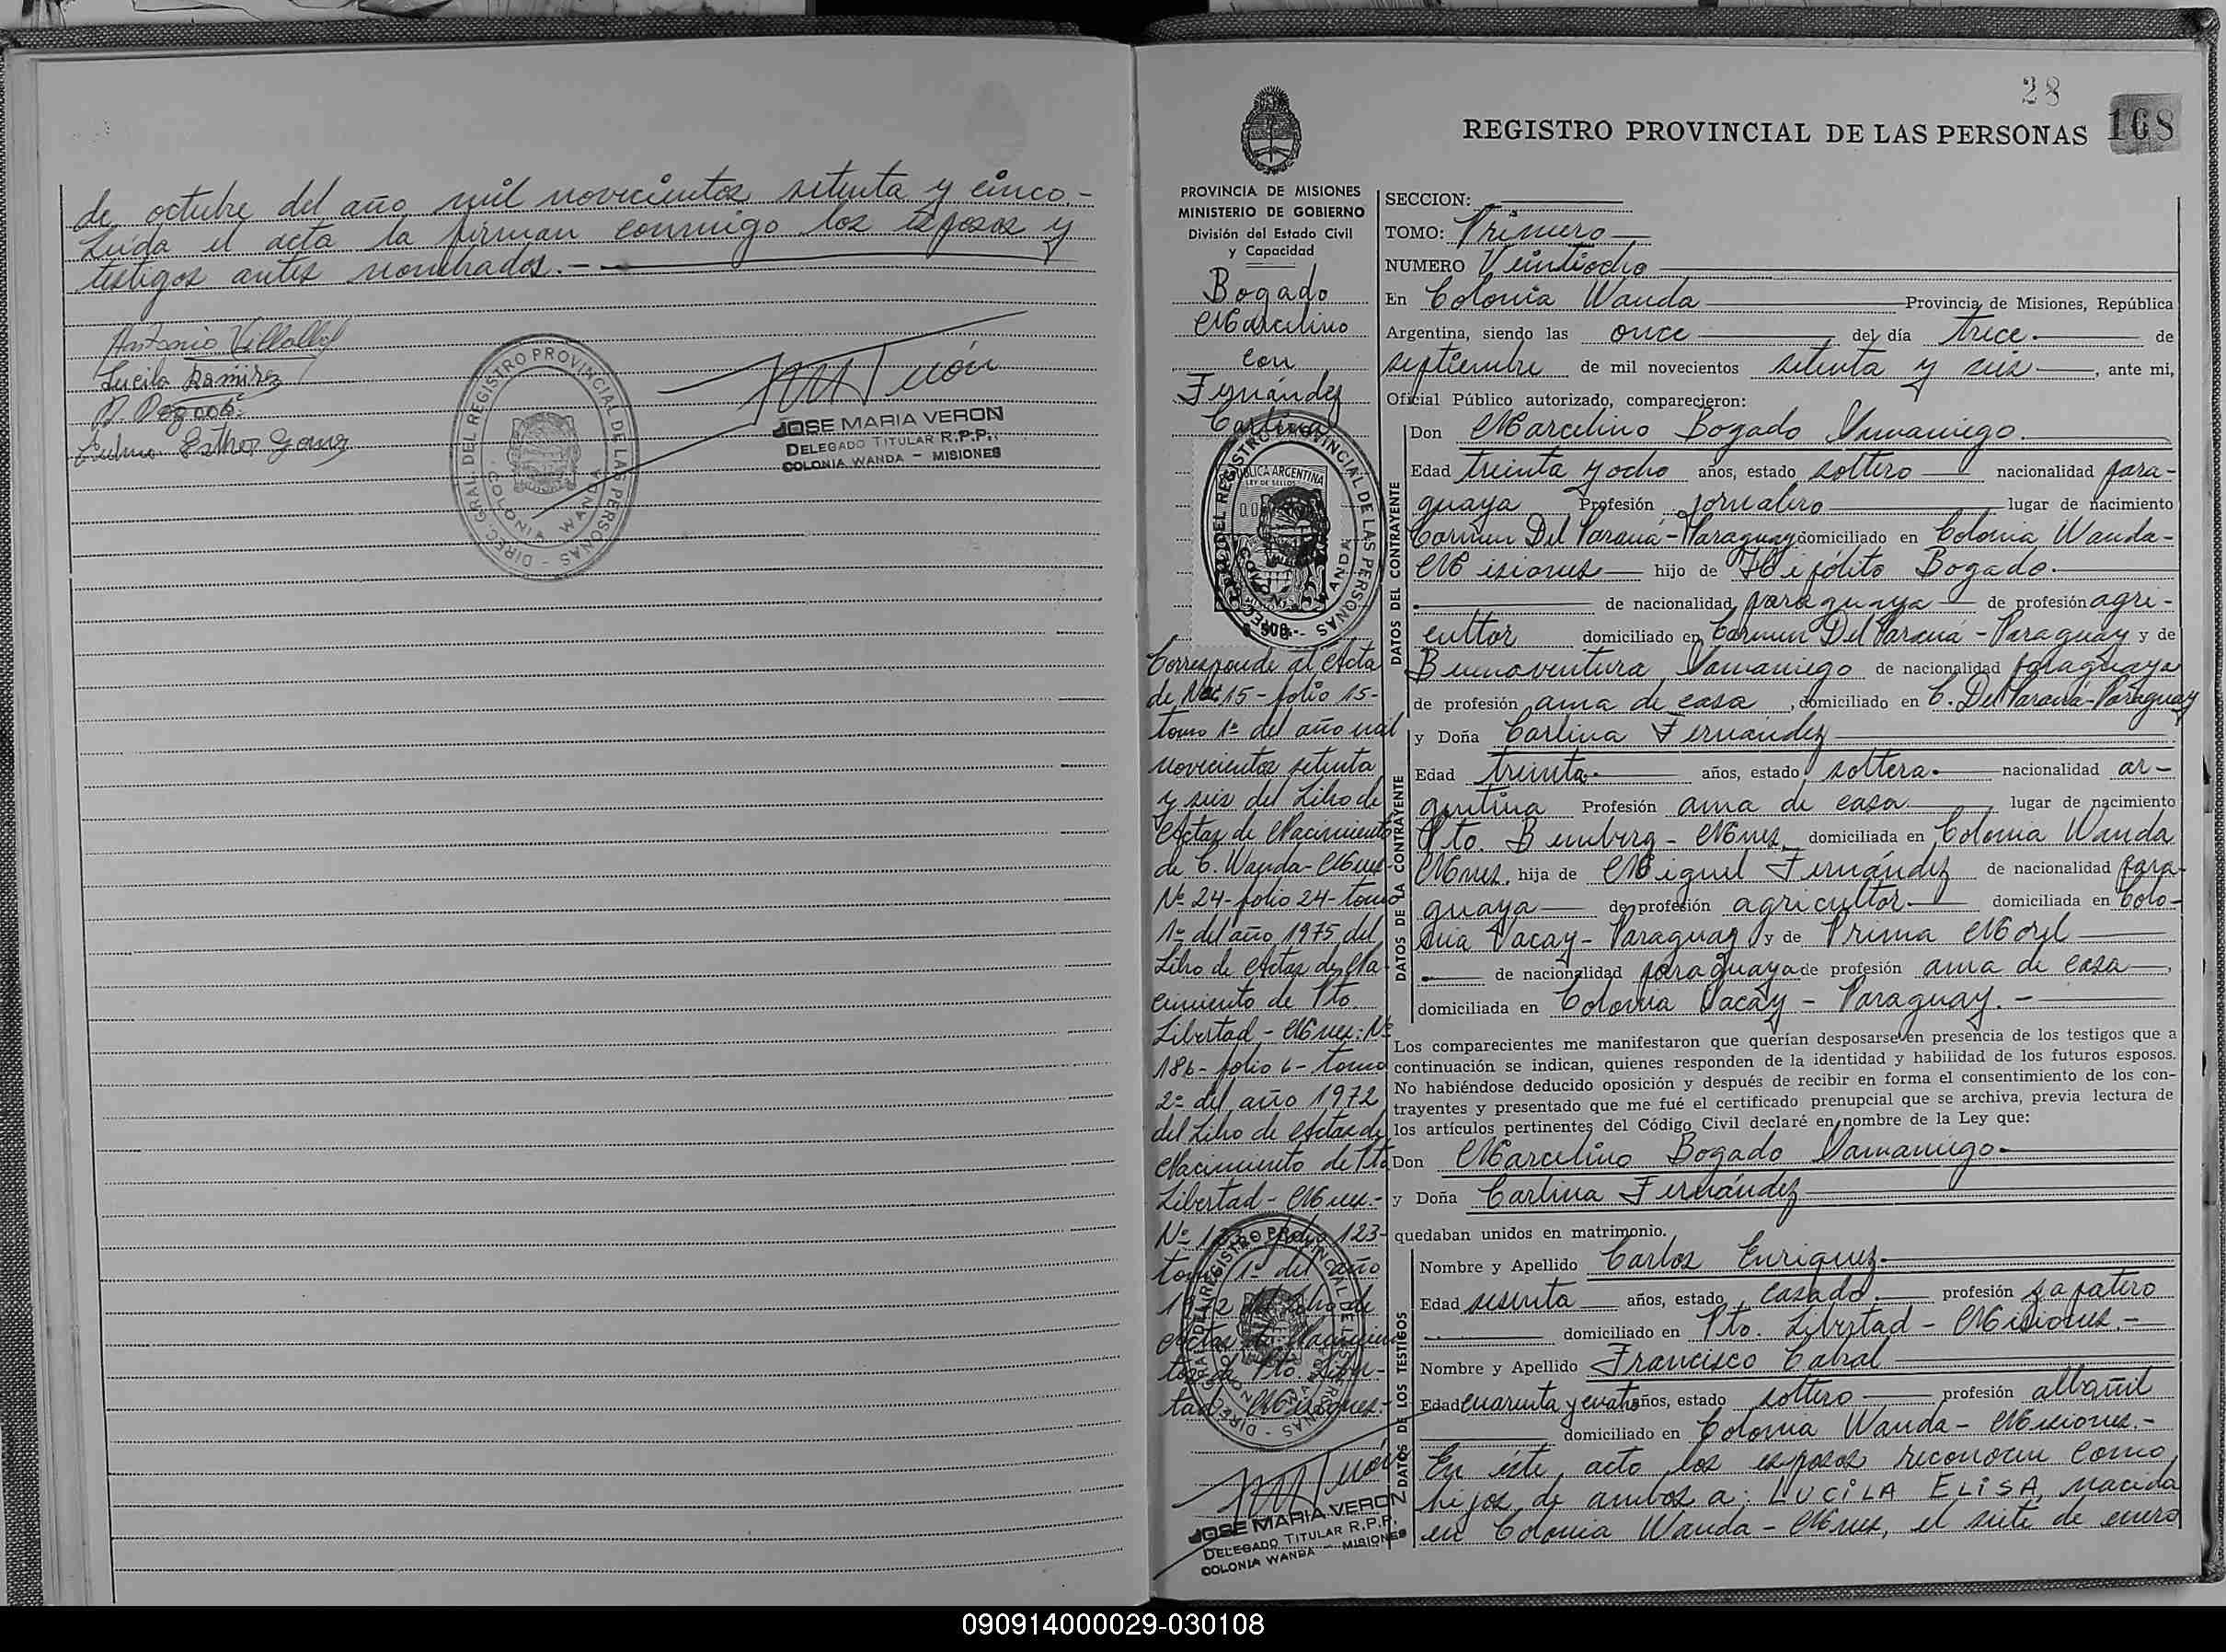 de octubre del año mil novecientos setenta y cinco.-
Leída el acta la firman conmigo los esposos y
testigos antes nombrados.-
Antonio Villalba
Lucila Ramirez
Esther Gomez
DIREC. GRAL. DEL REGISTRO PROVINCIAL DE LAS PERSONAS - COLONIA WANDA
JOSE MARIA VERON
DELEGADO TITULAR R.P.P.
COLONIA WANDA - MISIONES
28
168
REGISTRO PROVINCIAL DE LAS PERSONAS
PROVINCIA DE MISIONES
MINISTERIO DE GOBIERNO
División del Estado Civil
y Capacidad
Bogado
Marcelino
con
Fernández
Carlina
Corresponde al Acta
de Nac. 15 - folio 15 -
tomo 1º del año mil
novecientos setenta
y seis del Libro de
Actas de Nacimiento
de C. Wanda - Mnes.
Nº 24 - folio 24 - tomo
1º del año 1975 del
Libro de Actas de Na-
cimiento de Pto.
Libertad - Mnes: Nº
186 - folio 6 - tomo
2º del año 1972
del Libro de Actas de
Nacimiento de Pto.
Libertad - Mnes.-
Nº folio 123 -
tomo 1º del año
Libro de
Actas de Nacimien
tos de Pto. Liber-
tad Misiones.-
JOSE MARIA VERON
DELEGADO TITULAR R.P.P.
COLONIA WANDA - MISIONES
SECCION:
TOMO: Primero
NUMERO Veintiocho
En Colonia Wanda Provincia de Misiones, República
Argentina, siendo las once del día trece de
septiembre de mil novecientos setenta y seis, ante mi,
Oficial Público autorizado, comparecieron:
DATOS DEL CONTRAYENTE
Don Marcelino Bogado Samaniego.
Edad treinta y ocho años, estado soltero nacionalidad para-
guaya Profesión jornalero lugar de nacimiento
Carmen Del Paraná - Paraguay domiciliado en Colonia Wanda -
Misiones hijo de Hipólito Bogado.
de nacionalidad paraguaya de profesión agri-
cultor domiciliado en Carmen Del Paraná - Paraguay y de
Buenaventura Samaniego de nacionalidad paraguaya
de profesión ama de casa, domiciliado en C. Del Paraná - Paraguay
DATOS DE LA CONTRAYENTE
y Doña Carlina Fernández
Edad treinta años, estado soltera nacionalidad ar-
gentina Profesión ama de casa lugar de nacimiento
Pto. Bemberg - Mnes. domiciliada en Colonia Wanda
Mnes. hija de Miguel Fernández de nacionalidad para-
guaya de profesión agricultor domiciliada en Colo-
nia Vacay - Paraguay y de Prima Morel
de nacionalidad paraguaya de profesión ama de casa,
domiciliada en Colonia Vacay - Paraguay.-
Los comparecientes me manifestaron que querían desposarse en presencia de los testigos que a
continuación se indican, quienes responden de la identidad y habilidad de los futuros esposos.
No habiéndose deducido oposición y después de recibir en forma el consentimiento de los con-
trayentes y presentado que me fué el certificado prenupcial que se archiva, previa lectura de
los artículos pertinentes del Código Civil declaré en nombre de la Ley que:
Don Marcelino Bogado Samaniego.
y Doña Carlina Fernández
quedaban unidos en matrimonio.
DATOS DE LOS TESTIGOS
Nombre y Apellido Carlos Enriquez.
Edad sesenta años, estado casado. profesión zapatero
domiciliado en Pto. Libertad - Misiones.-
Nombre y Apellido Francisco Cabral
Edad cuarenta y cuatro años, estado soltero profesión albañil
domiciliado en Colonia Wanda - Misiones.-
En éste acto los esposos reconocen como
hijos de ambos a: LUCILA ELISA, nacida
en Colonia Wanda - Mnes, el siete de enero
090914000029-030108